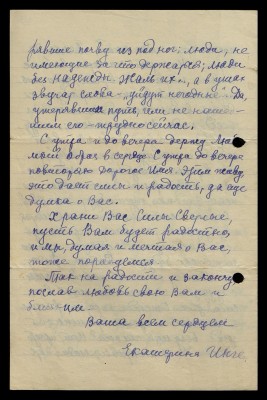 рявшие почву из под ног. Люди, не
имеющие за что держаться; люди
без надежды. Жаль их.., а в ушах
звучат слова - „уйдут негодные". Да,
утерявшим путь, или не нашед-
шим его - трудно сейчас.
С утра и до вечера держу
мой образ в сердце. С утра до вечера
повторяю дорогое Имя. Этим живу,
это дает силы и радость, да еще
думка о Вас.
Храни Вас Силы Светлые,
пусть Вам будет радостно,
и мы, думая и мечтая о Вас,
тоже порадуемся.
Так на радости и закончу
послав любовь свою Вам и
близким.
Ваша всем сердцем
Екатерина Инге